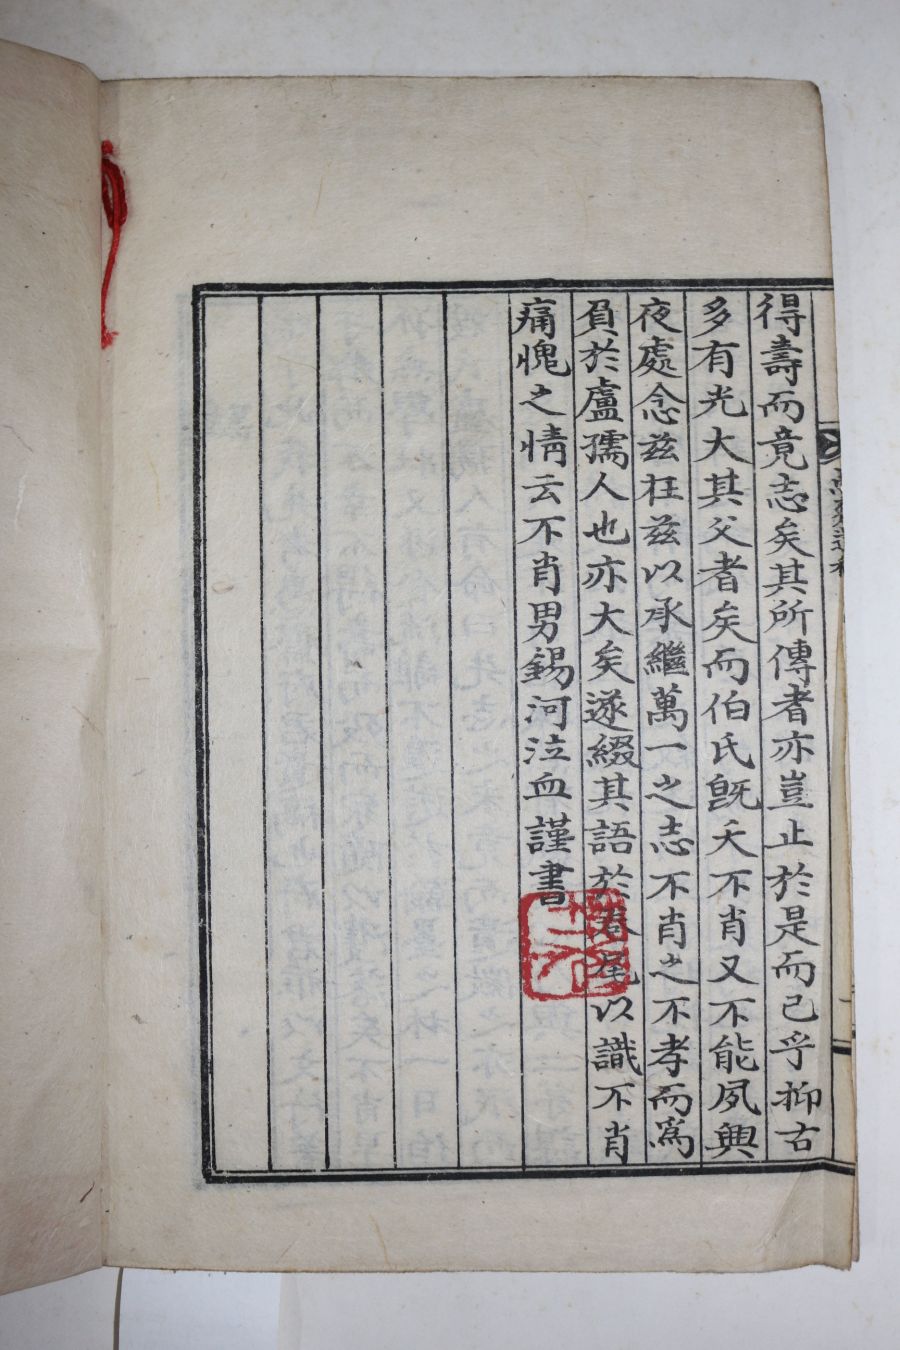 得壽而竟志矣其所傳者亦豈止於是而已乎抑古
多有光大其父者矣而伯氏旣夭不肖又不能夙興
夜處念兹在兹以承繼萬一之志不肖之不孝而爲
負於盧孺人也亦大矣遂綴其語於卷尾以識不肖
痛愧之情云不肖男錫河泣血謹書